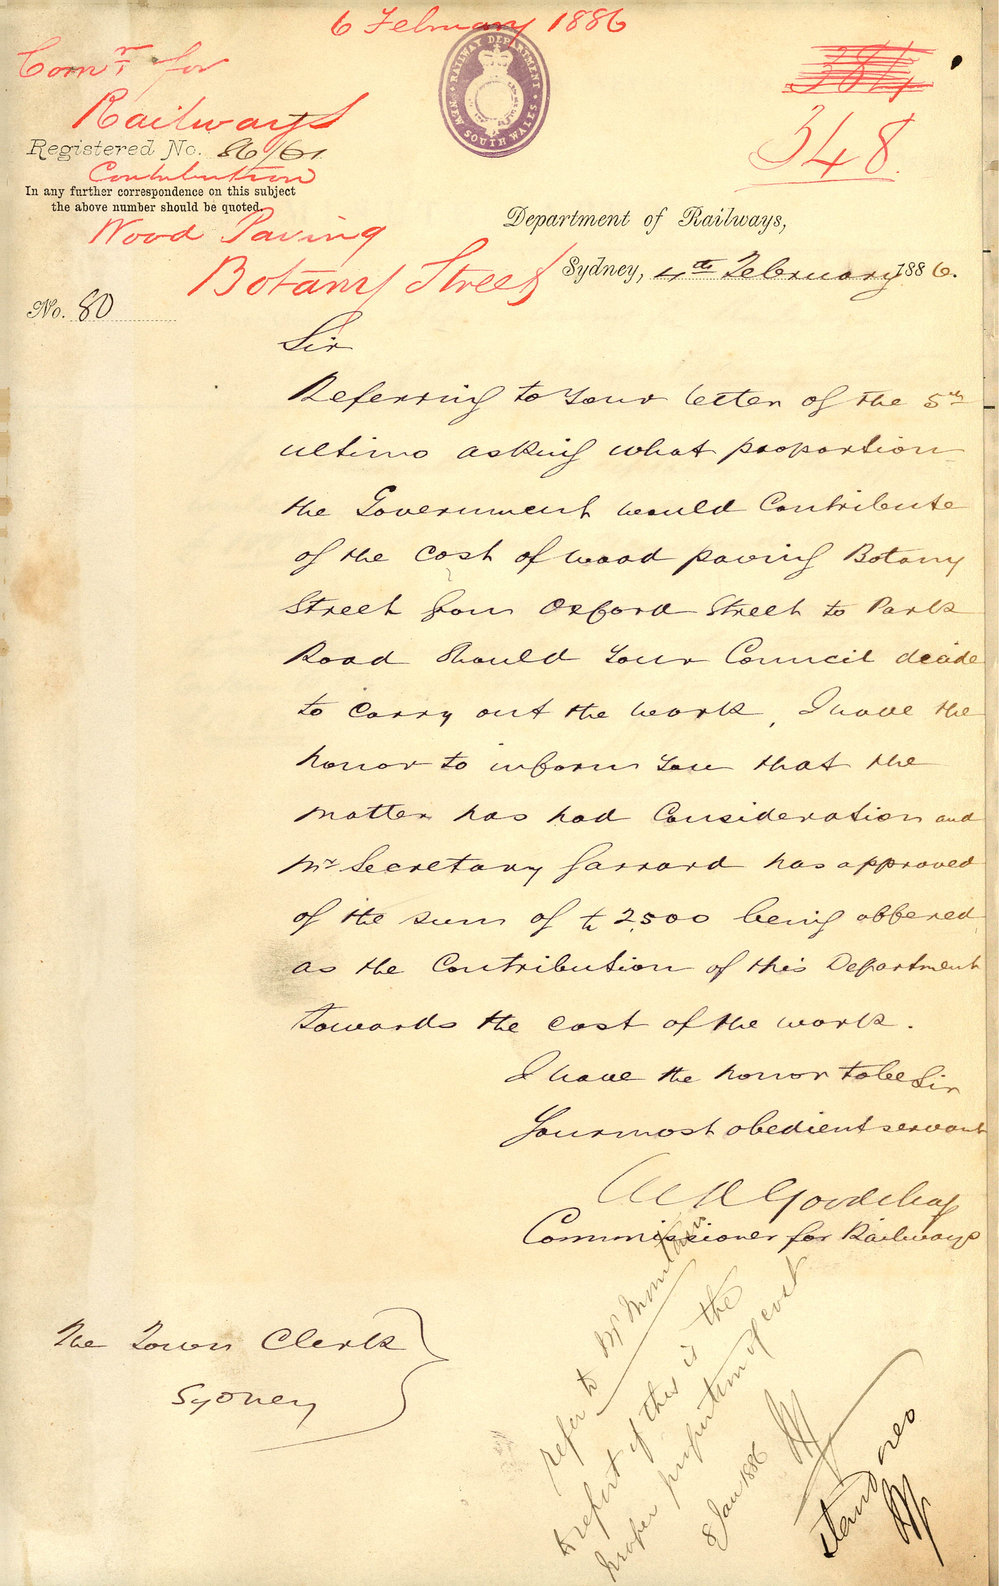 6 February 1886
Comr. for
Railways
RAILWAY DEPARTMENT
NEW SOUTH WALES
384
348.
Registered No. 86/61
Contribution
In any further correspondence on this subject
the above number should be quoted.
Wood Paving
Botany Street
Department of Railways,
Sydney, 4th February 1886.
No. 80
Sir
Referring to your letter of the 5th
ultimo asking what proportion
the Government would Contribute
of the cost of wood paving Botany
Street from Oxford Street to Park
Road should your Council decide
to carry out the work, I have the
honor to inform you that the
matter has had Consideration and
Mr Secretary Garrard has approved
of the sum of £2,500 being offered
as the Contribution of this Department
towards the cost of the work.
I have the honor to be Sir
Your most obedient servant
Goodchap
Commissioner for Railways
The Town Clerk
Sydney
refer to Mr
to report if this is the
proper proportion of cost
8 Jan 1886
stand over